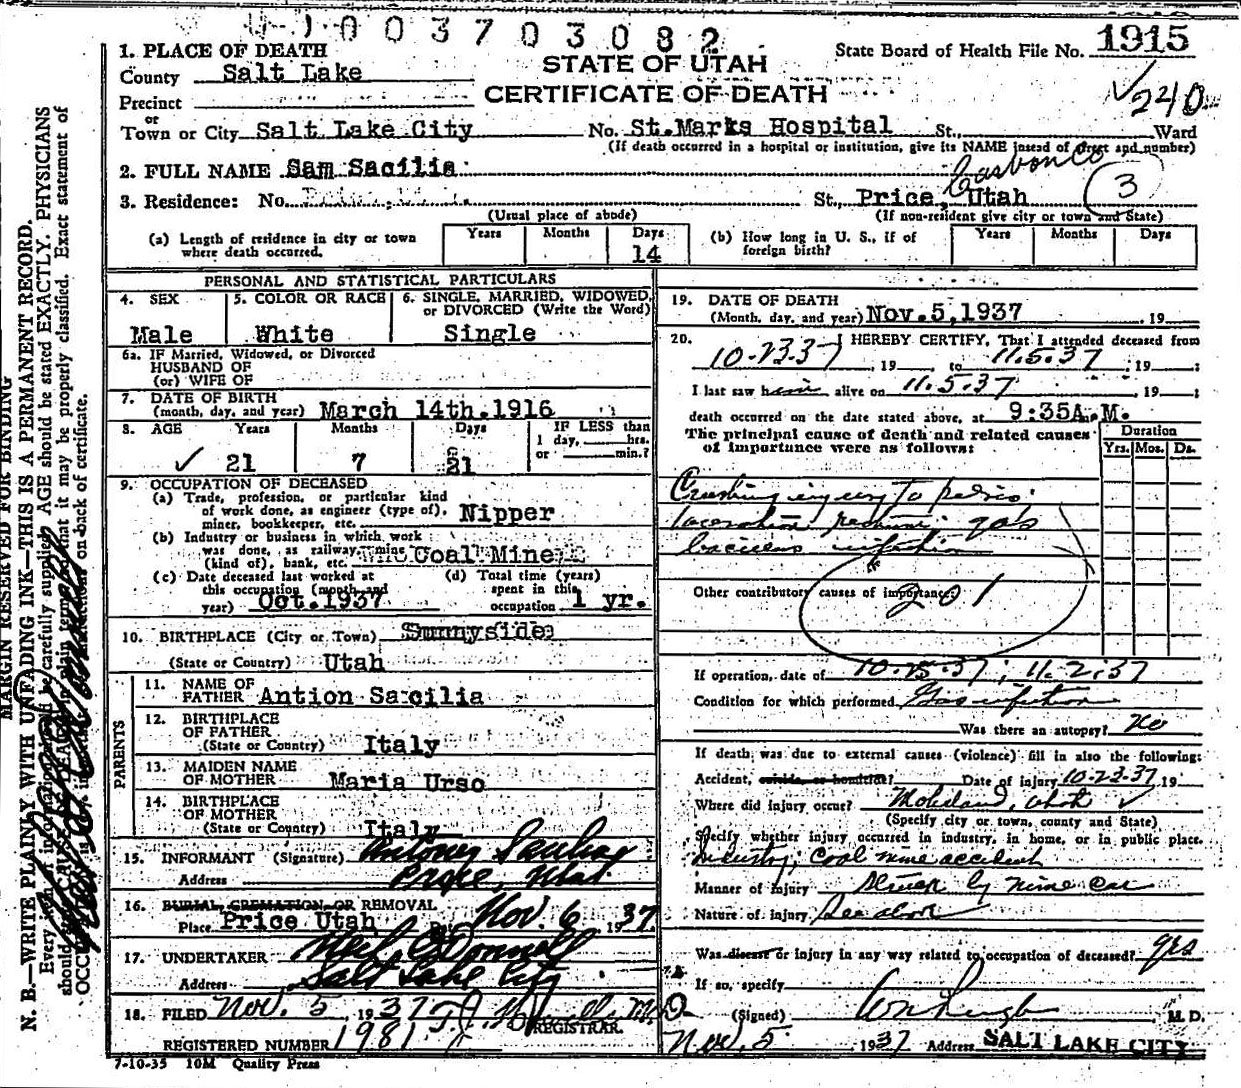 003703082
1. PLACE OF DEATH
STATE OF UTAH
State Board of Health File No. 1915
County Salt Lake
CERTIFICATE OF DEATH
✓240
Precinct
or
Town or City Salt Lake City No. St.Marks Hospital St., Ward
(If death occurred in a hospital or institution, give its NAME insead of street and number)
2. FULL NAME Sam Sacilia
Carbon Co
3. Residence: No. St., Price, Utah 3
(Usual place of abode) (If non-resident give city or town and State)
(a) Length of residence in city or town where death occurred. Years Months Days 14
(b) How long in U. S., if of foreign birth? Years Months Days
PERSONAL AND STATISTICAL PARTICULARS
4. SEX Male
5. COLOR OR RACE White
6. SINGLE, MARRIED, WIDOWED, or DIVORCED (Write the Word) Single
6a. IF Married, Widowed, or Divorced
HUSBAND OF
(or) WIFE OF
7. DATE OF BIRTH
(month, day, and year) March 14th.1916
8. AGE Years Months Days IF LESS than
1 day, hrs.
or min.?
✓ 21 7 21
9. OCCUPATION OF DECEASED
(a) Trade, profession, or particular kind
of work done, as engineer (type of),
miner, bookkeeper, etc. Nipper
(b) Industry or business in which work
was done, as railway, mine
(kind of), bank, etc. Coal Mine
(c) Date deceased last worked at
this occupation (month and
year) Oct.1937
(d) Total time (years)
spent in this
occupation 1 yr.
10. BIRTHPLACE (City or Town) Sunnyside
(State or Country) Utah
PARENTS
11. NAME OF
FATHER Antion Sacilia
12. BIRTHPLACE
OF FATHER
(State or Country) Italy
13. MAIDEN NAME
OF MOTHER Maria Urso
14. BIRTHPLACE
OF MOTHER
(State or Country) Italy
15. INFORMANT (Signature) Antony
Address Price, Utah
16. BURIAL, CREMATION OR REMOVAL
Place Price Utah Date Nov. 6 1937
17. UNDERTAKER Neil O'Donnell
Address Salt Lake City
18. FILED Nov. 5 1937
REGISTRAR.
REGISTERED NUMBER 1981
7-10-35 10M Quality Press
19. DATE OF DEATH
(Month, day, and year) Nov.5,1937 , 19
20. I HEREBY CERTIFY, That I attended deceased from
10-23-37, 19 to 11.5.37, 19 :
I last saw him alive on 11.5.37, 19 :
death occurred on the date stated above, at 9:35A.M.
The principal cause of death and related causes
of importance were as follows:
Duration
Yrs. Mos. Ds.
Crushing injury to pelvis.
laceration rectum; gas
bacillus infection
Other contributory causes of importance:
201
If operation, date of 10-25-37; 11-2-37
Condition for which performed Gas infection
Was there an autopsy? no
If death was due to external causes (violence) fill in also the following:
Accident, suicide or homicide? Date of injury 10-23-37 19
Where did injury occur? Mohrland, Utah ✓
(Specify city or town, county and State)
Specify whether injury occurred in industry, in home, or in public place.
Industry; Coal mine accident
Manner of injury Struck by mine car
Nature of injury See above
Was disease or injury in any way related to occupation of deceased? yes
If so, specify
(Signed) M. D.
Nov. 5 1937 Address SALT LAKE CITY
MARGIN RESERVED FOR BINDING
N. B.—WRITE PLAINLY WITH UNFADING INK—THIS IS A PERMANENT RECORD.
Every item of information should be carefully supplied. AGE should be stated EXACTLY. PHYSICIANS
should state CAUSE OF DEATH in plain terms, so that it may be properly classified. Exact statement of
OCCUPATION is on back of certificate.